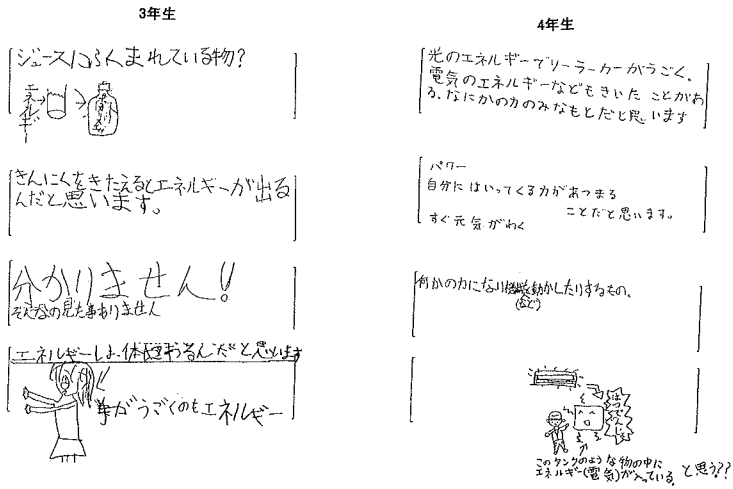 3年生
ジュースにふくまれている物?
エネルギー
きんにくをきたえるとエネルギーが出る
んだと思います。
分かりません!!
そんなの見た事ありません
エネルギーは、体を
うるんだと思います
手がうごくのもエネルギー
4年生
光のエネルギーでソーラーカーがうごく。
電気のエネルギーなどもきいたことがあ
る。なにかの力のみなもとだと思います
パワー
自分にはいってくる力があつまる
ことだと思います。
すぐ元気がわく
何かの力になり機械を動かしたりするもの。
(など)
このタンクのような物の中に
エネルギー(電気)が入っている。と思う??